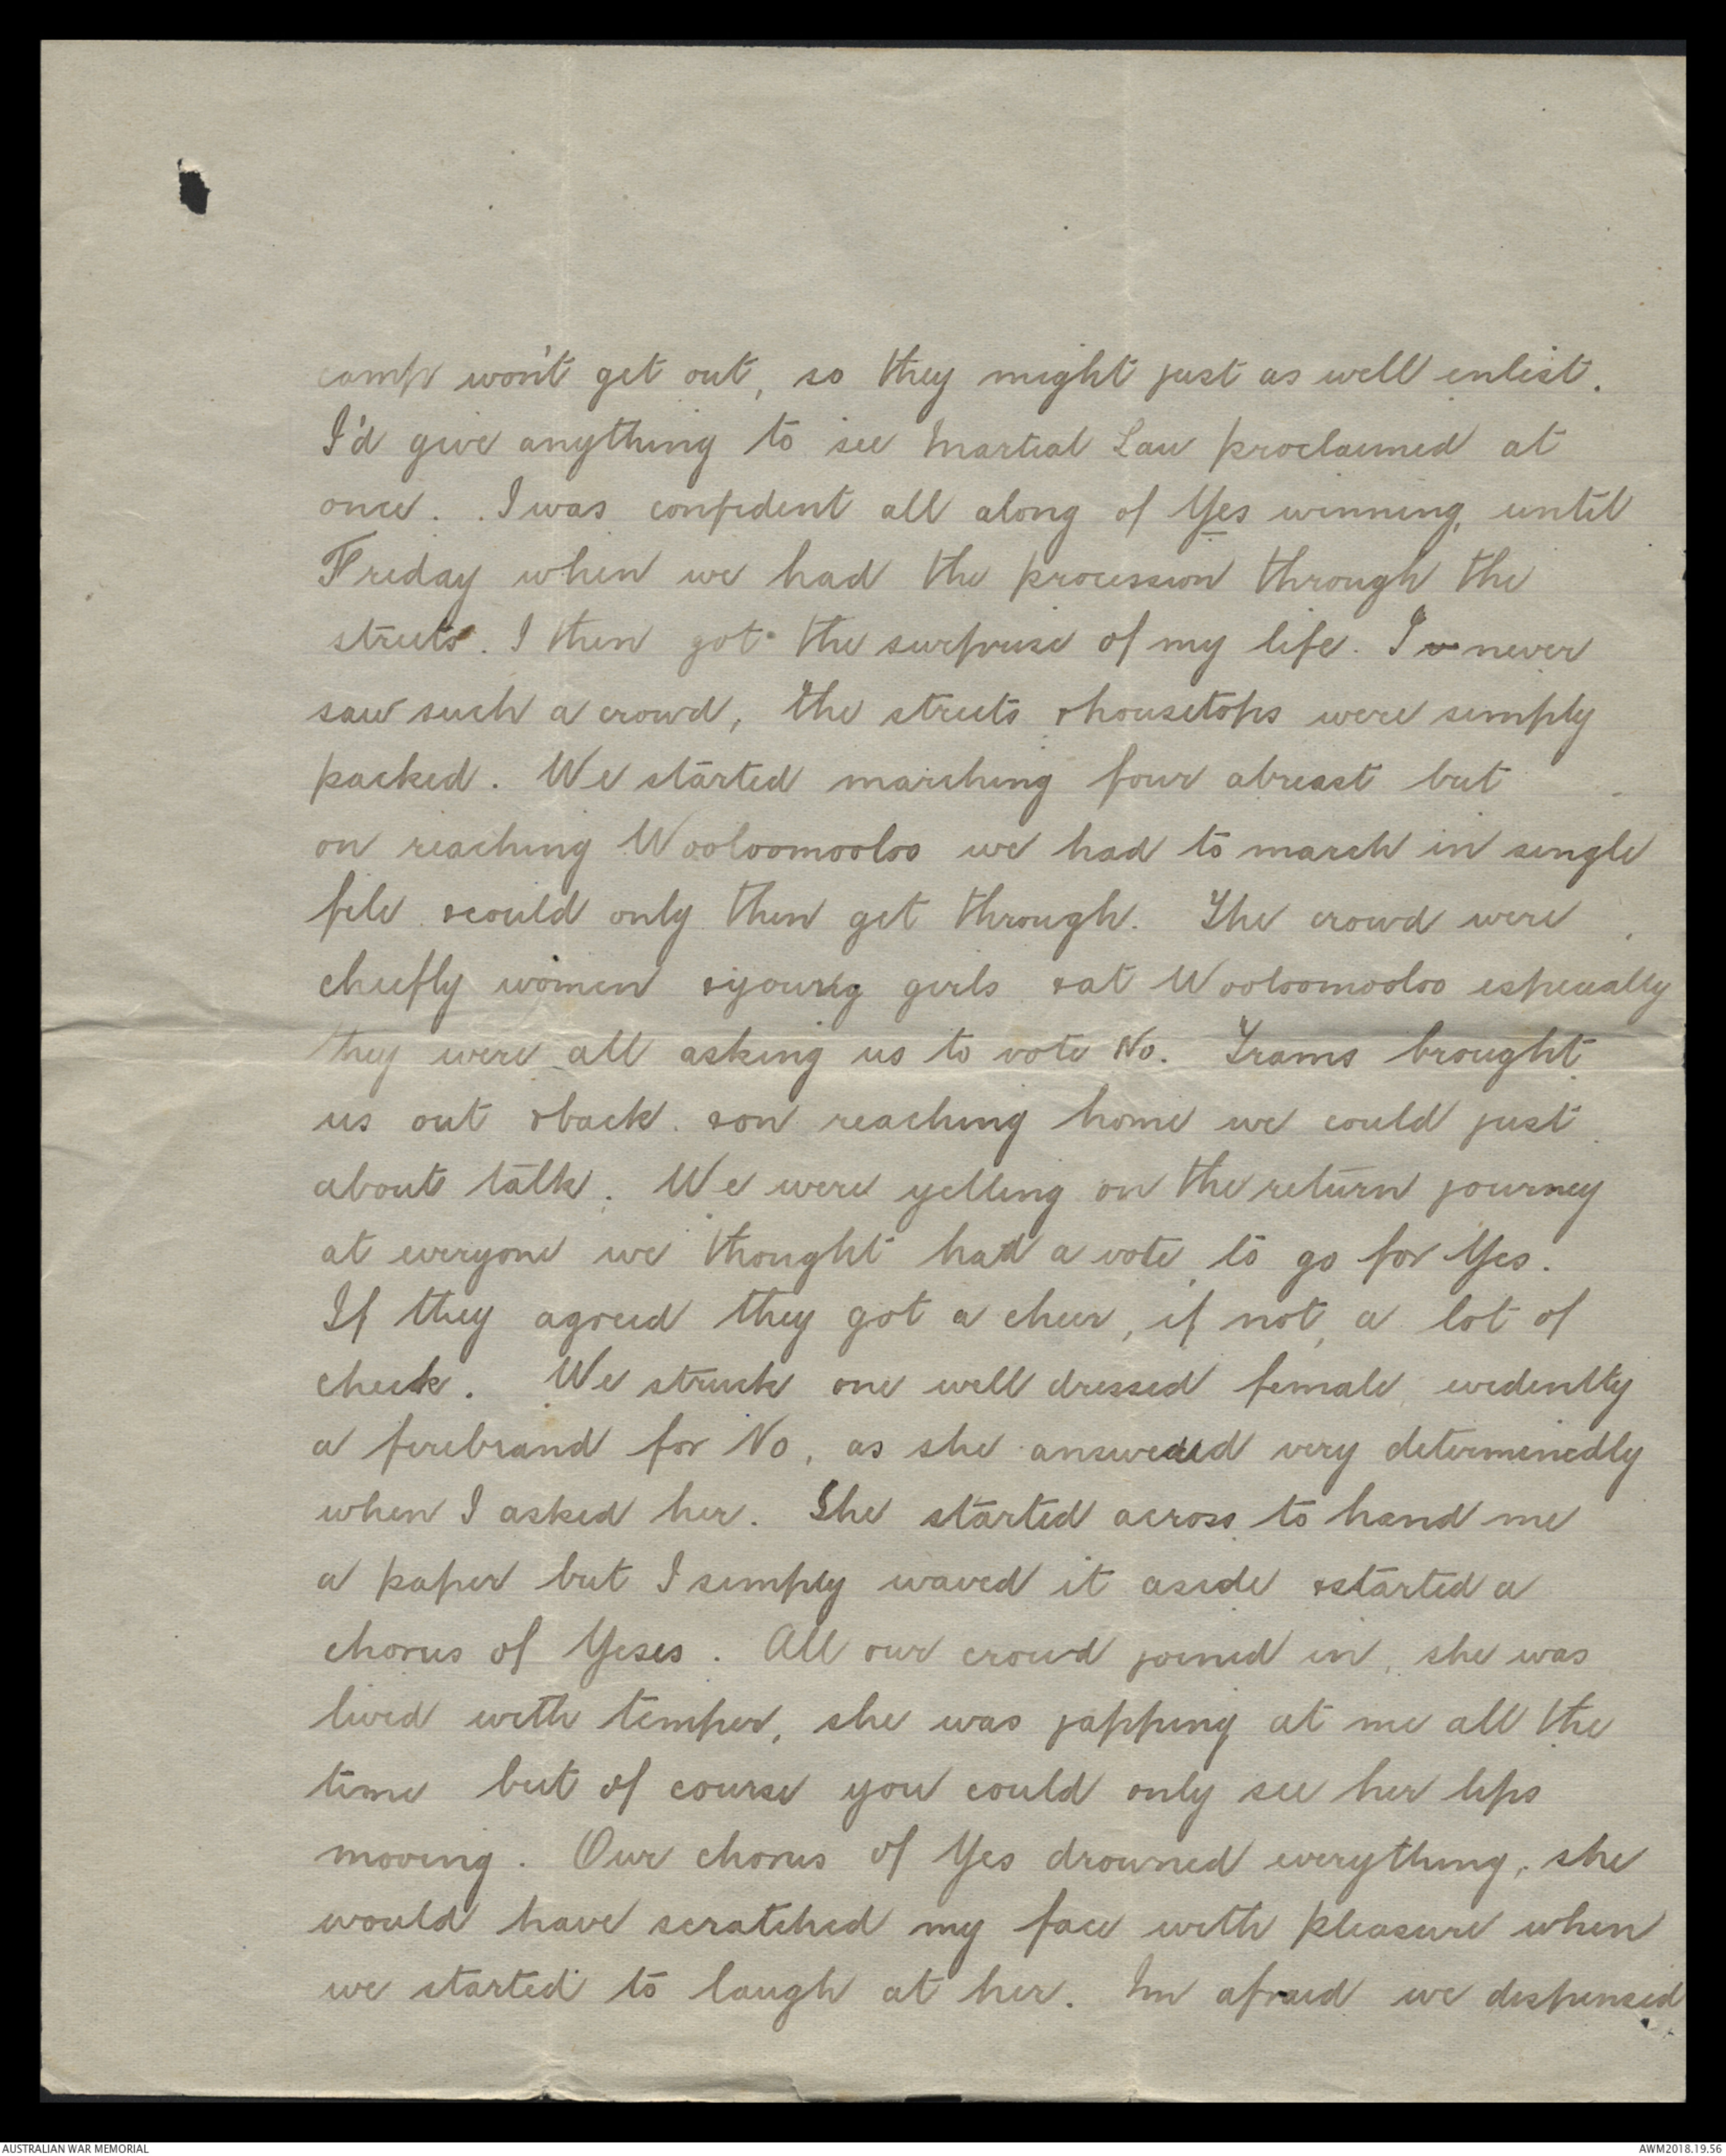 camp won't get out, so they might just as well enlist.
I'd give anything to see Martial Law proclaimed at
once. I was confident all along of Yes winning, until
Friday when we had the procession through the
streets. I then got the surprise of my life. I never
saw such a crowd, the streets & housetops were simply
packed. We started marching four abreast but
on reaching Wooloomooloo we had to march in single
file & could only then get through. The crowd were
chiefly women & young girls & at Wooloomooloo especially
they were all asking us to vote No. Trams brought
us out & back & on reaching home we could just
about talk. We were yelling on the return journey
at everyone we thought had a vote to go for Yes.
If they agreed they got a cheer, if not, a lot of
cheek. We struck one well dressed female, evidently
a firebrand for No, as she answered very determinedly
when I asked her. She started across to hand me
a paper but I simply waved it aside & started a
chorus of Yeses. All our crowd joined in, she was
livid with temper, she was yapping at me all the
time but of course you could only see her lips
moving. Our chorus of Yes drowned everything, she
would have scratched my face with pleasure when
we started to laugh at her. Im afraid we dispensed
AUSTRALIAN WAR MEMORIAL
AWM2018.19.56